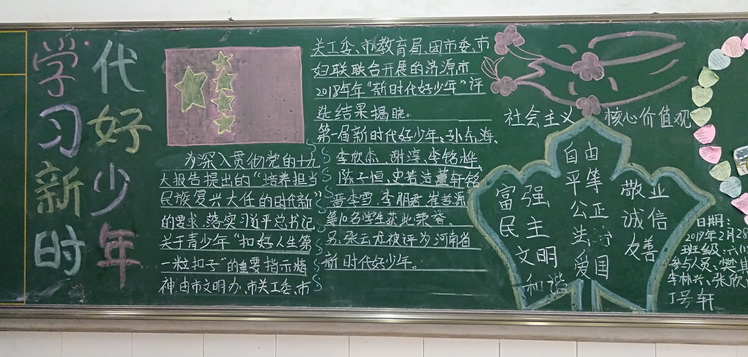 学习新时
代好少年
为深入贯彻党的十九
大报告提出的“培养担当
民族复兴大任的时代新
的要求,落实习近平总书记
关于青少年“扣好人生第
一粒扣子”的重要指示精
神,由市文明办、市关工委、市
关工委、市教育局、团市委、市
妇联联合开展的济源市
2018年年“新时代好少年”评
选结果揭晓。
第一届新时代好少年、孙东海、
李欣杰、谢滨、李铭烨
陈子恒、史若洁、董轩铭
李雪、李朋君、
等10名学生获此荣誉。
另,张云尤被评为河南省
新时代好少年。
社会主义 核心价值观
富强
民主
文明
和谐
自由
平等
公正
法治
爱国
敬业
诚信
友善
日期:
2019年2月28
班级:六(
参与人员:樊
李林兴、张欣
丁号轩